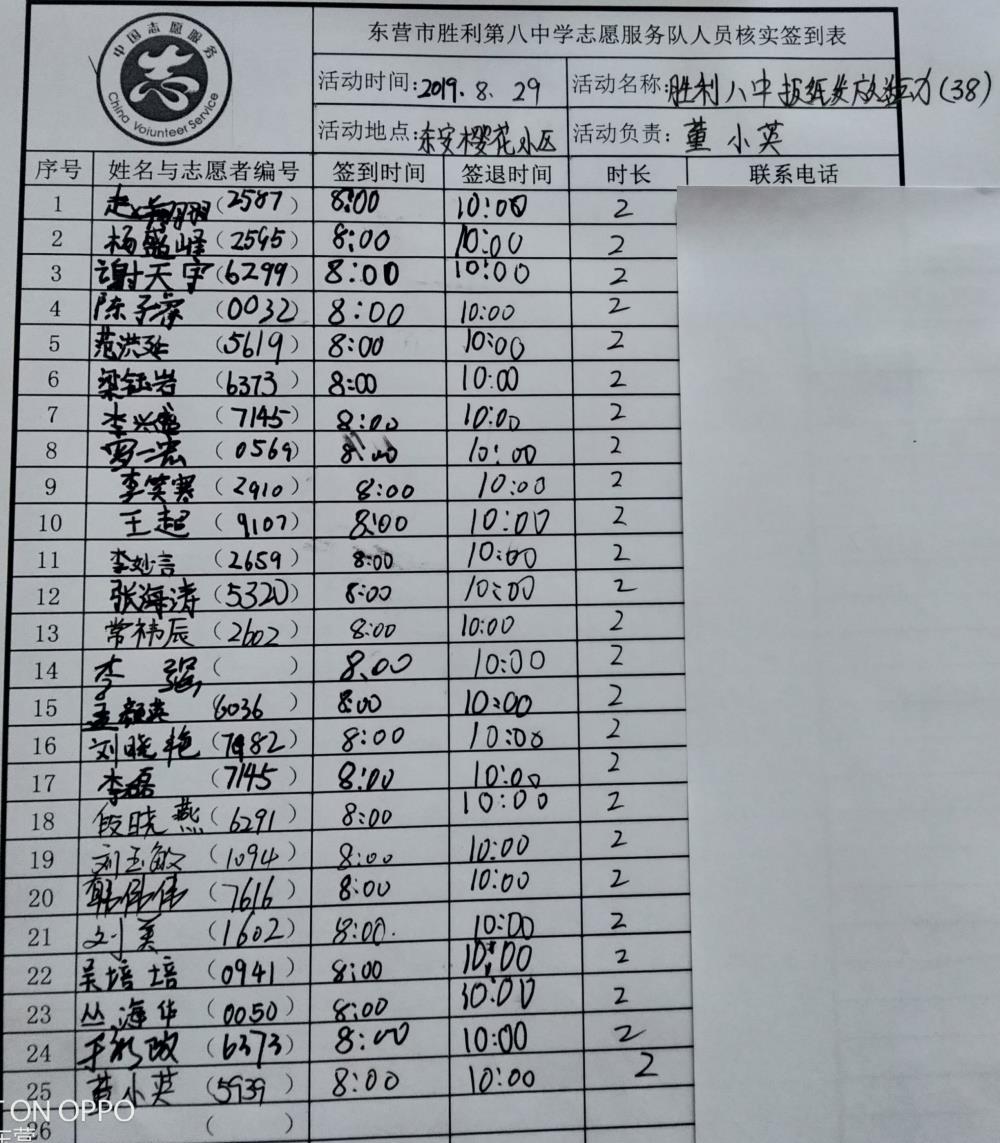 中国志愿服务
志
China Volunteer Service
东营市胜利第八中学志愿服务队人员核实签到表
活动时间:2019.8.29 活动名称:胜利八中报纸发放活动(38)
活动地点:东安樱花小区 活动负责:董小英
序号 姓名与志愿者编号 签到时间 签退时间 时长 联系电话
1 赵翔翔(2587) 8:00 10:00 2
2 杨盛峰(2595) 8:00 10:00 2
3 谢天宇(6299) 8:00 10:00 2
4 陈子睿(0032) 8:00 10:00 2
5 范洪延(5619) 8:00 10:00 2
6 梁钰岩(6373) 8:00 10:00 2
7 李兴盛(7145) 8:00 10:00 2
8 一宏(0569) 8:00 10:00 2
9 李笑寒(2910) 8:00 10:00 2
10 王超(9107) 8:00 10:00 2
11 李妙言(2659) 8:00 10:00 2
12 张海涛(5320) 8:00 10:00 2
13 常祎辰(2602) 8:00 10:00 2
14 李强( ) 8:00 10:00 2
15 孟颖英 6036 8:00 10:00 2
16 刘晓艳(7982) 8:00 10:00 2
17 李磊(7145) 8:00 10:00 2
18 段晓燕(6291) 8:00 10:00 2
19 刘玉敏(1094) 8:00 10:00 2
20 韩伟伟(7616) 8:00 10:00 2
21 刘美(1602) 8:00 10:00 2
22 吴培培(0941) 8:00 10:00 2
23 丛海华(0050) 8:00 10:00 2
24 (6373) 8:00 10:00 2
25 董小英(5939) 8:00 10:00 2
26 ( )
ON OPPO
东营